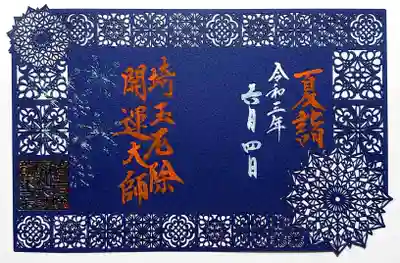 夏詣
令和三年
六月四日
埼玉厄除
開運大師